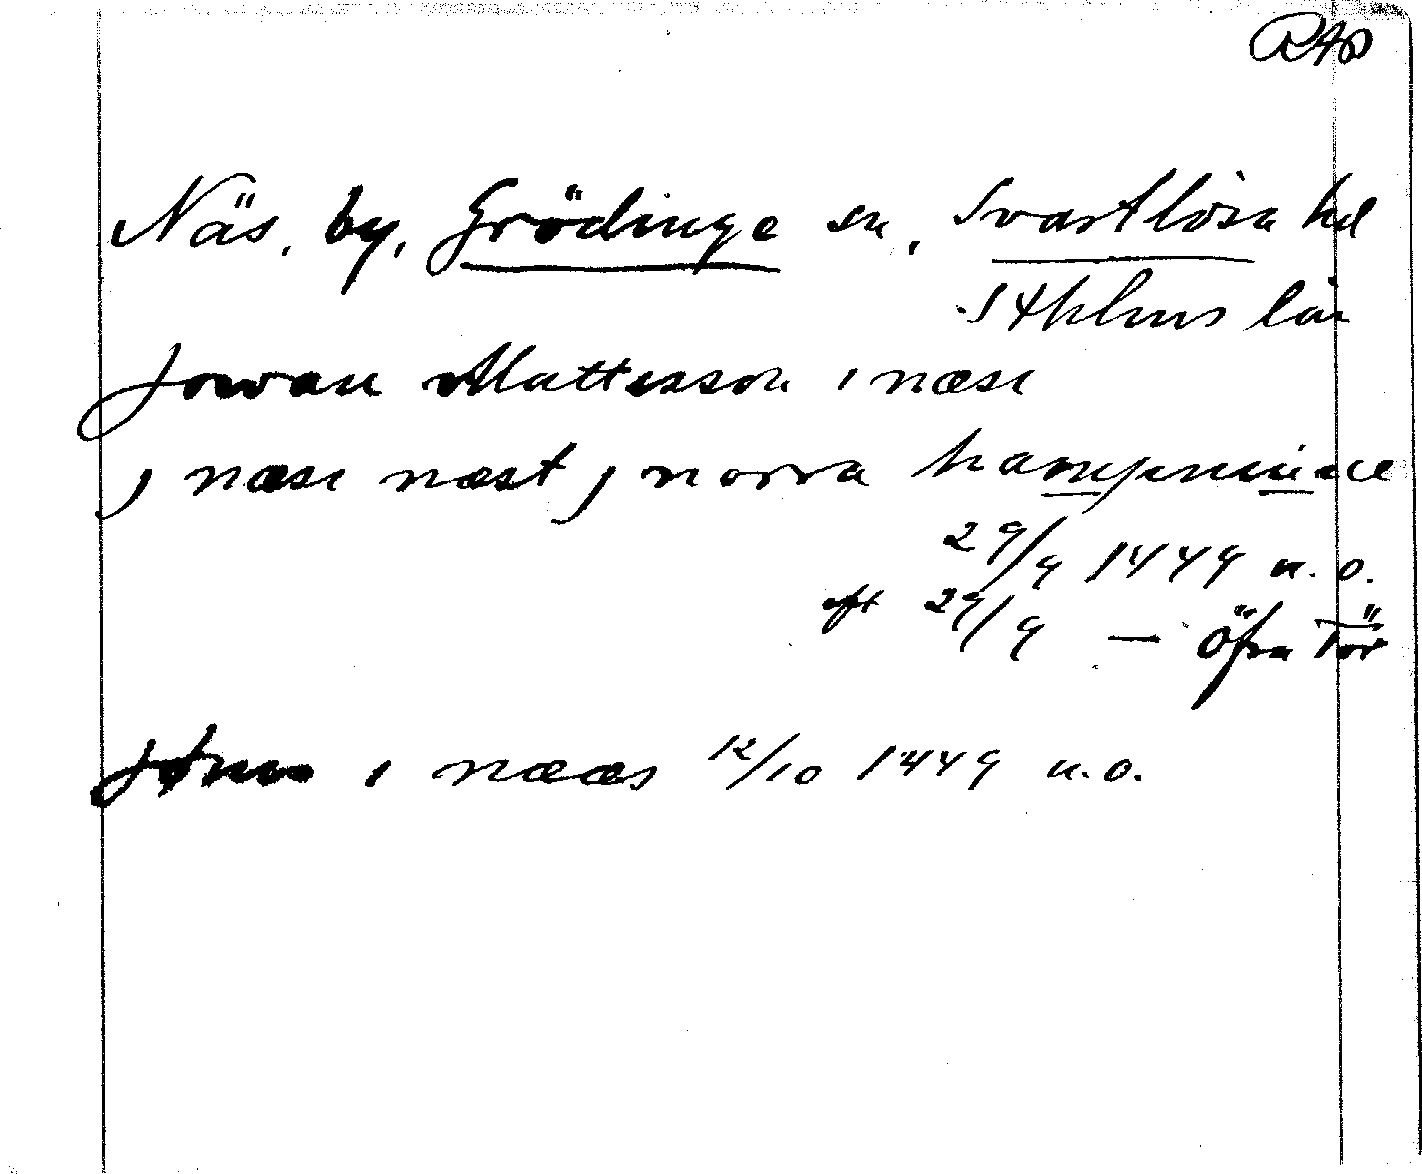 RAp
Näs, by, Grödinge sn, Svartlösa hd
Sthlms län
Jowan Mattesson i næsi
j næsi næst j norra hampnene
29/9 1449 u.o.
eft 29/9 — Öfra Tör
i nææs 12/10 1449 u.o.